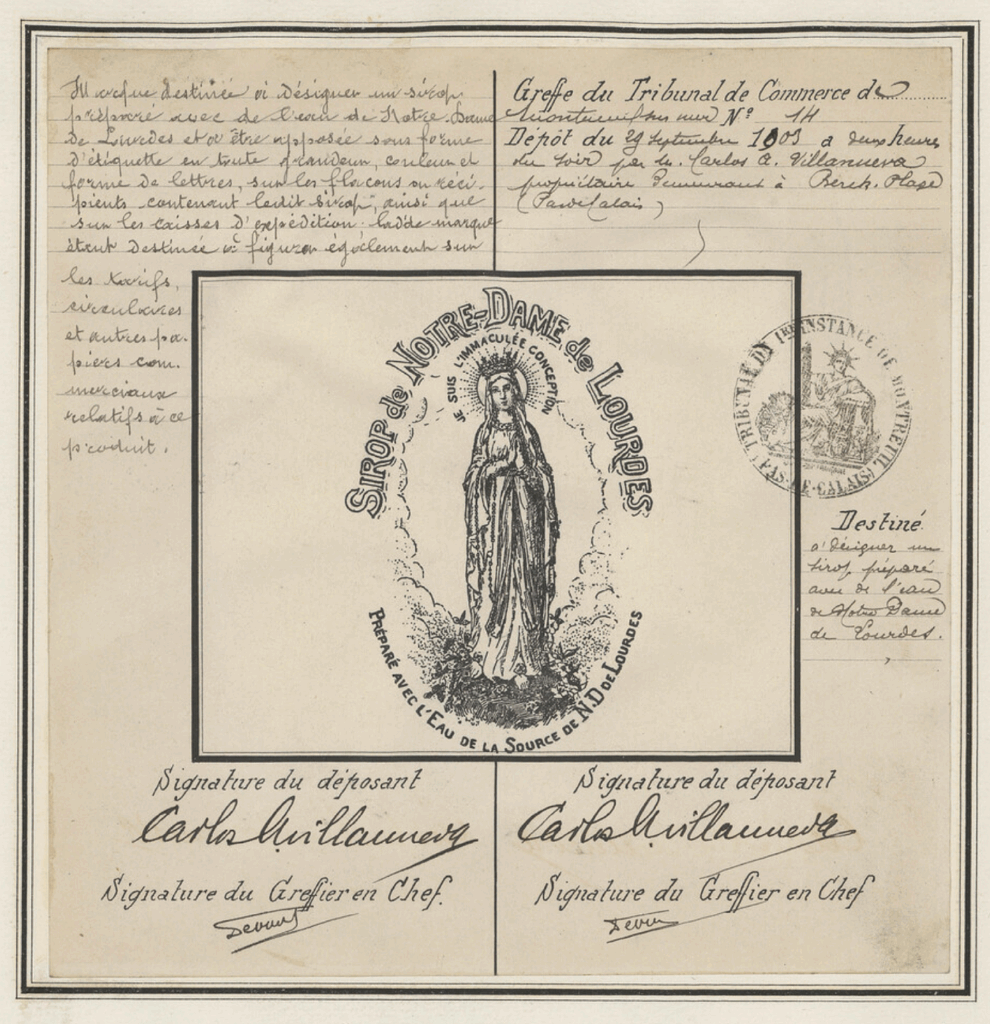 Marque destinée à désigner un sirop
préparé avec de l'eau de Notre-Dame
de Lourdes et à être apposée sous forme
d'étiquette en toute grandeur, couleur et
forme de lettres, sur les flacons ou réci-
pients contenant ledit Sirop, ainsi que
sur les caisses d'expédition. Ladde marque
étant destinée à figurer également sur
les tarifs,
circulaires
et autres pa-
piers com-
merciaux
relatifs à ce
produit.
Greffe du Tribunal de Commerce de
Montreuil sur mer N° 14
Dépôt du 29 Septembre 1903 a deux heures
du soir par M. Carlos A. Villanueva
propriétaire demeurant à Berck-Plage
(Pas de Calais)
SIROP de NOTRE-DAME de LOURDES
JE SUIS L'IMMACULÉE CONCEPTION
PRÉPARÉ AVEC L'EAU DE LA SOURCE DE N.D DE LOURDES
TRIBUNAL DE 1RE INSTANCE DE MONTREUIL
PAS-DE-CALAIS
Destiné
à désigner un
sirop préparé
avec de l'eau
de Notre Dame
de Lourdes.
Signature du déposant
Carlos A. Villanueva
Signature du Greffier en Chef.
Signature du déposant
Carlos A. Villanueva
Signature du Greffier en Chef